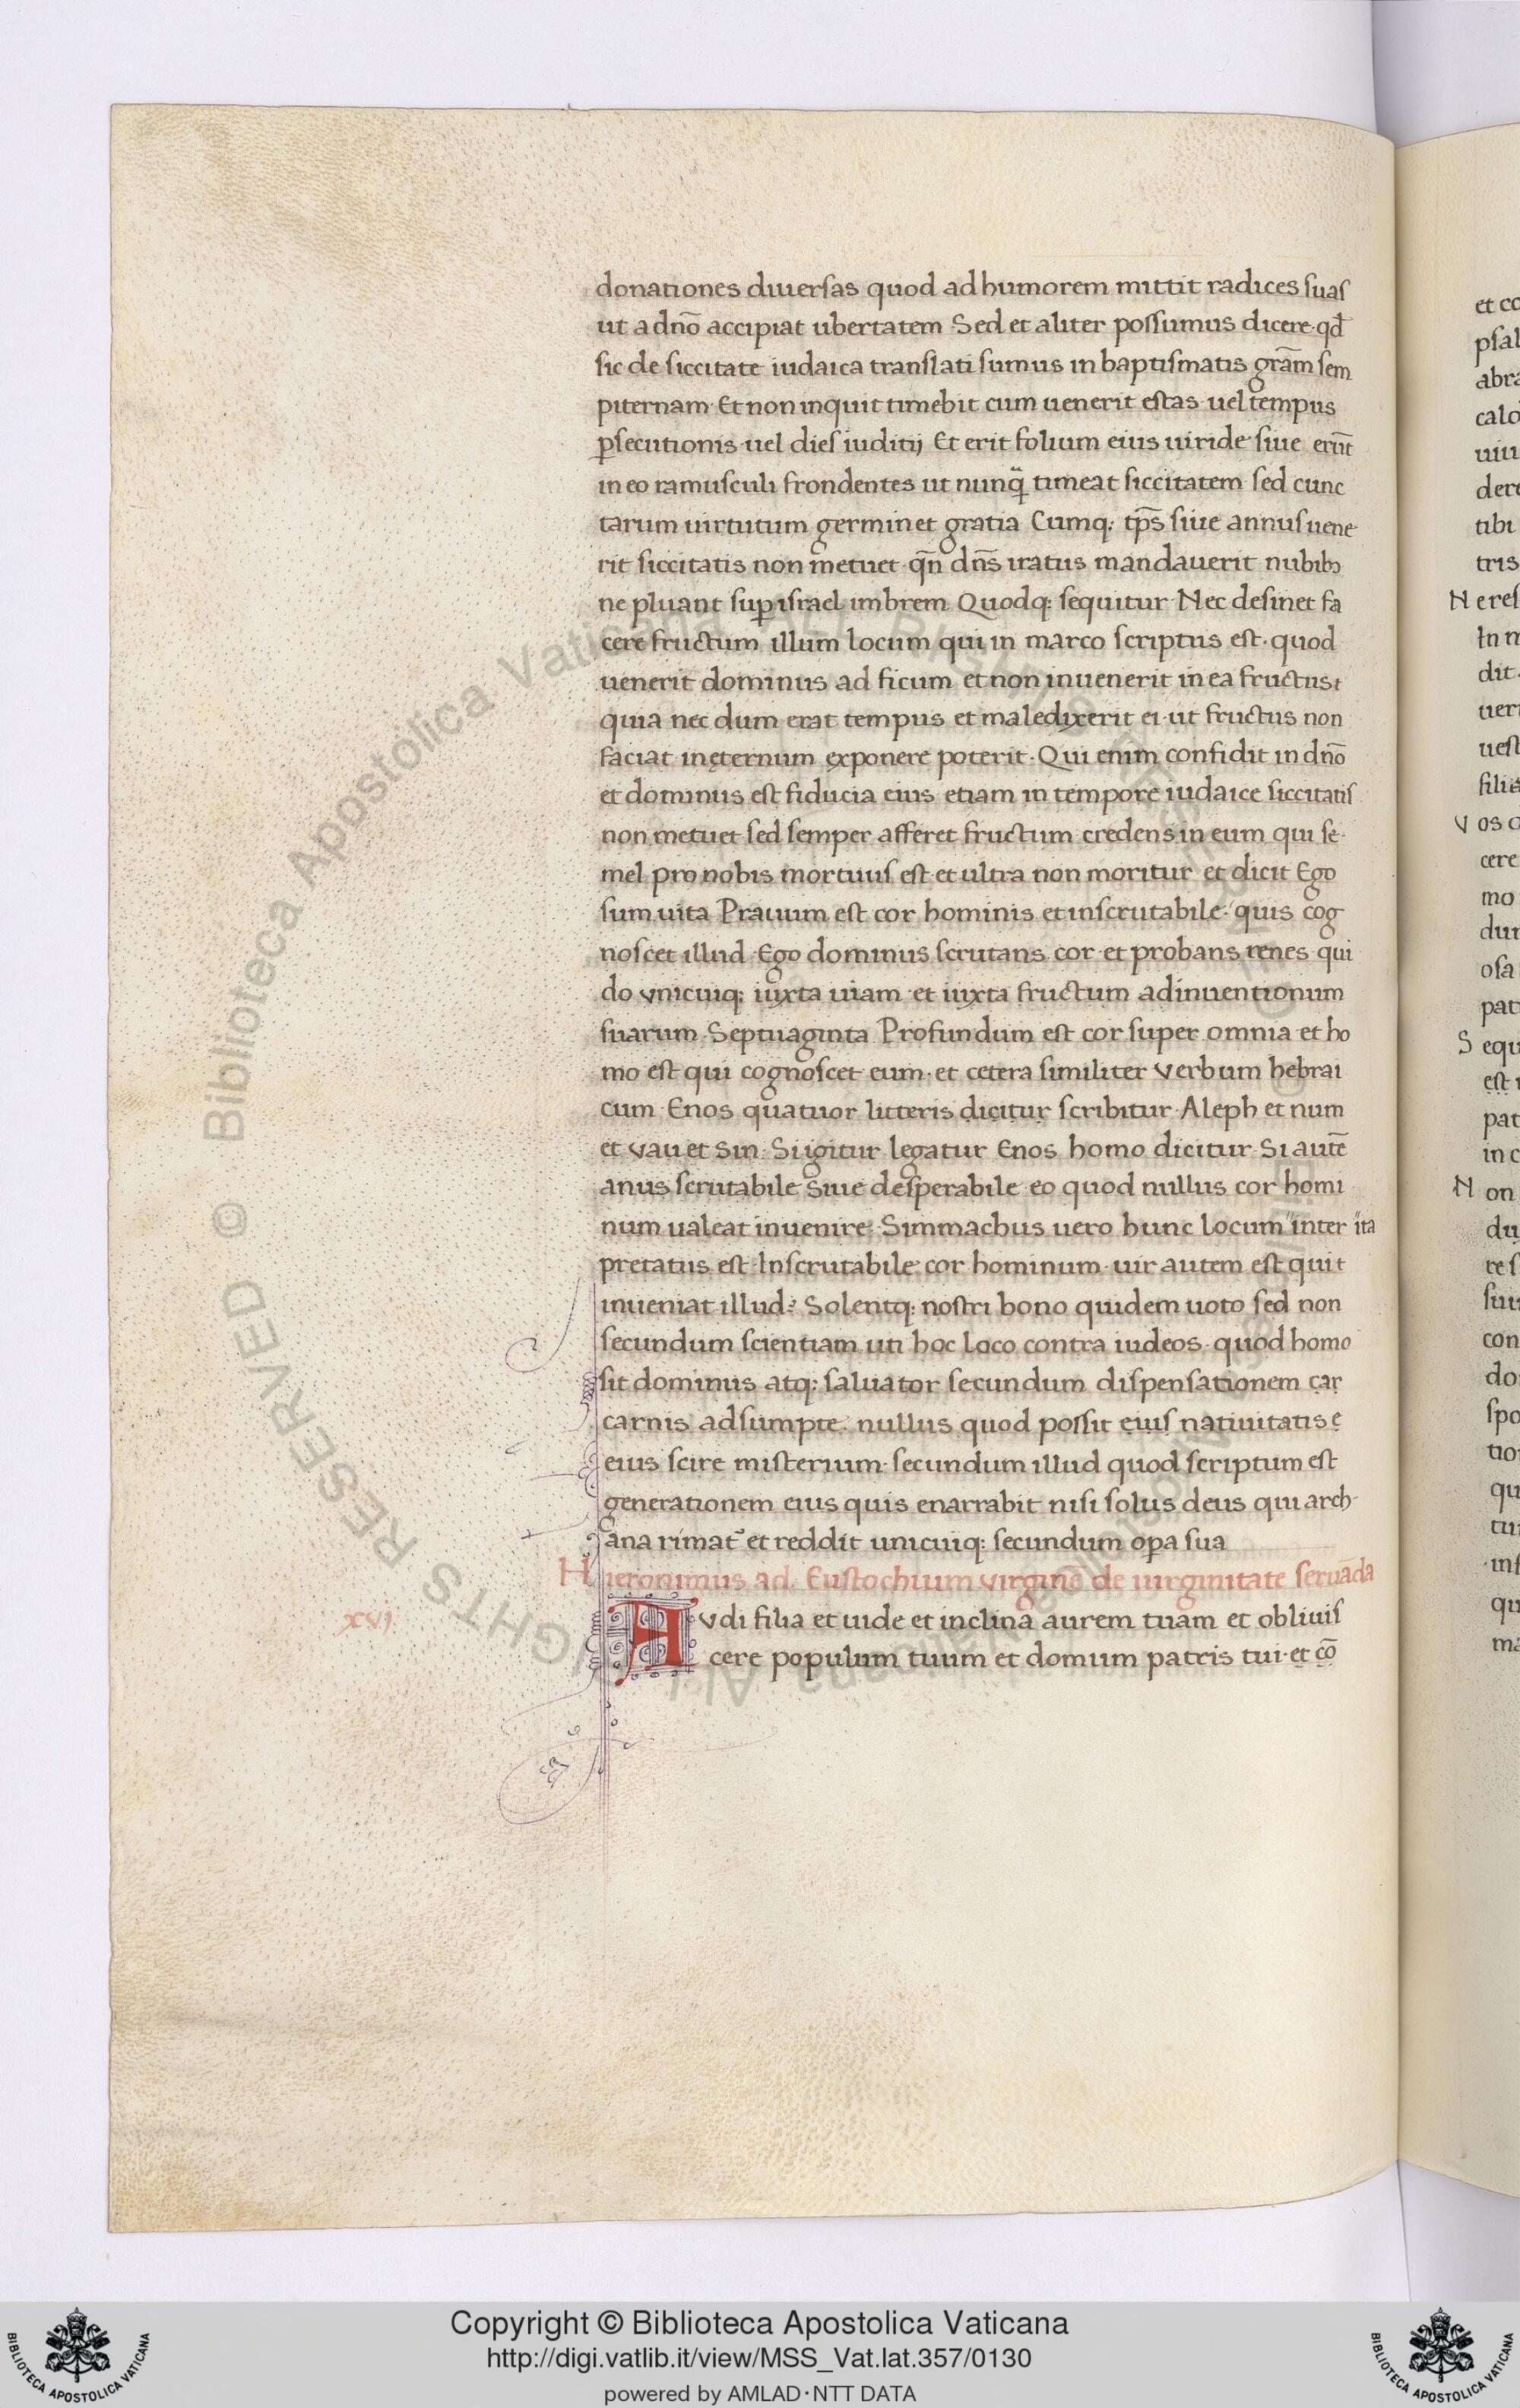 donationes diuersas quod ad humorem mittit radices suas
ut a dno̅ accipiat ubertatem Sed et aliter possumus dicere· qd̅
sic de siccitate iudaica translati sumus in baptismatis gra̅m sem
piternam· Et non inquit timebit cum uenerit estas· uel tempus
p̲secutionis· uel dies iuditij Et erit folium eius uiride· siue eru̅t
in eo ramusculi frondentes ut nunq̃ timeat siccitatem· sed cunc
tarum uirtutum germinet gratia Cumq: tp̅s siue annus uene
rit siccitatis non metuet· qn̅ dn̅s iratus mandauerit nubibꝫ
ne pluant sup̲ israel imbrem Quodq: sequitur· Nec desinet fa
cere fructum illum locum qui in marco scriptus est· quod
uenerit dominus ad ficum et non inuenerit in ea fructus t
quia nec dum erat tempus et maledixerit ei· ut fructus non
faciat in ęternum exponere poterit· Qui enim confidit in dno̅
et dominus est fiducia eius etiam in tempore iudaice siccitatis
non metuet sed semper afferet fructum credens in eum qui se
mel pro nobis mortuus est· et ultra non moritur et dicit Ego
sum uita Prauum est cor hominis et inscrutabile· quis cog
noscet illud· Ego dominus scrutans cor· et probans renes qui
do vnicuiq: iuxta uiam· et iuxta fructum adinuentionum
suarum· Septuaginta Profundum est cor super omnia et ho
mo est qui cognoscet eum· et cetera similiter Verbum hebrai
cum Enos quatuor litteris dicitur scribitur· Aleph et num
et vau et sin· Si igitur legatur Enos homo dicitur· Si aute̅
anus scrutabile siue desperabile eo quod nullus cor homi
num ualeat inuenire· Simmachus uero hunc locum "inter "ita
pretatus est· Inscrutabile cor hominum· uir autem est quit
inueniat illud? Solentq: nostri bono quidem uoto sed non
secundum scientiam uti hoc loco contra iudeos· quod homo
sit dominus atq: saluator secundum dispensationem car
carnis adsumpte· nullus quod possit eius natiuitatis e
eius scire misterium· secundum illud quod scriptum est
generationem eius quis enarrabit nisi solus deus qui arch
ana rimat᷑ et reddit unicuiq: secundum op̲a sua
Hieronimus ad Eustochium virgine̅ de uirginitate serua̅da
xvi
Avdi filia et uide et inclina aurem tuam et obliuis
cere populum tuum et domum patris tui· et co̅
et co
psal
abra
calo
uiu
dere
tibi
tris
Neres
In m
dit·
uer
uest
filia
Vos
cere
mo
dur
osa
pat
Sequ
est
pat
in c
Non
du
re s
sui
con
do
spo
tio
qu
tu
ins
qu
ma
© Biblioteca Apostolica Vaticana ALL RIGHTS RESERVED
Copyright © Biblioteca Apostolica Vaticana
http://digi.vatlib.it/view/MSS_Vat.lat.357/0130
powered by AMLAD·NTT DATA
BIBLIOTECA APOSTOLICA VATICANA
BIBLIOTECA APOSTOLICA VATICANA